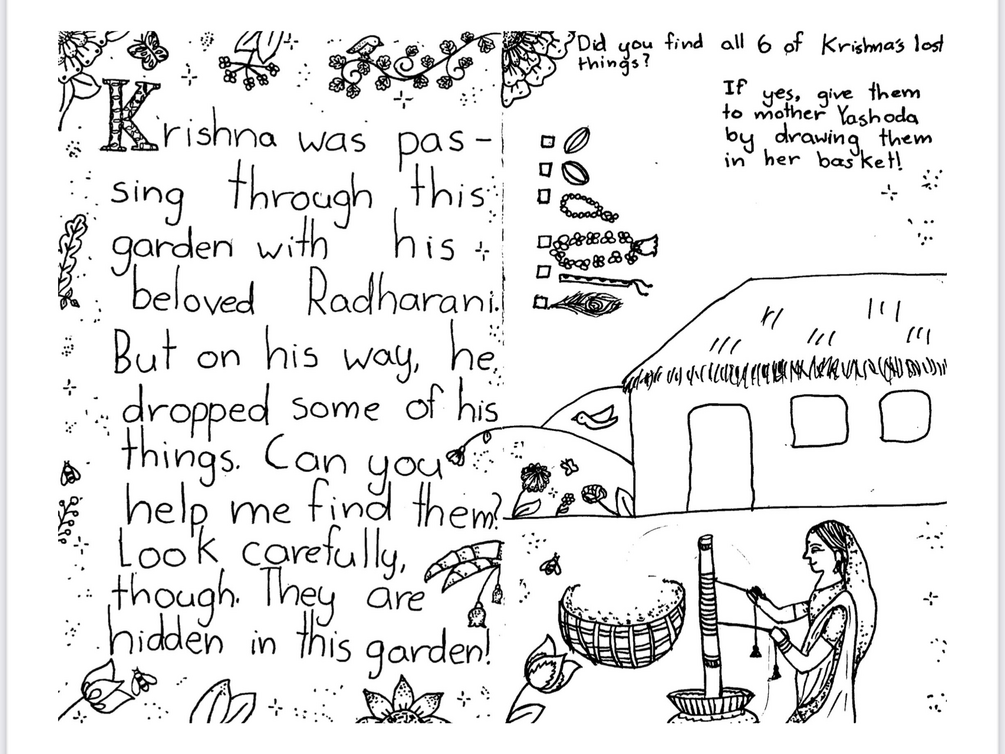 Krishna was pas-
sing through this
garden with his
beloved Radharani.
But on his way, he
dropped some of his
things. Can you
help me find them?
Look carefully,
though. They are
hidden in this garden!
Did you find all 6 of Krishna's lost
things?
If yes, give them
to mother Yashoda
by drawing them
in her basket!